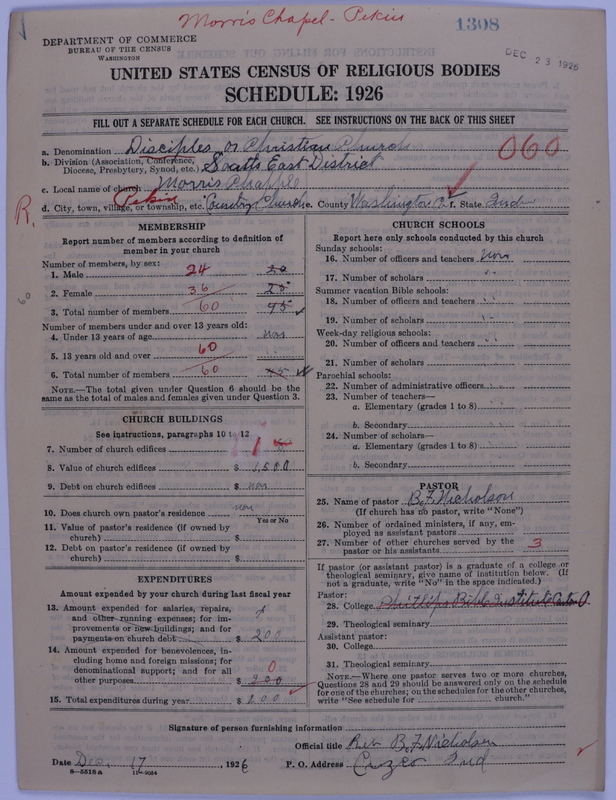 Morris Chapel - Pekin
1308
DEPARTMENT OF COMMERCE
BUREAU OF THE CENSUS
WASHINGTON
DEC 23 1926
UNITED STATES CENSUS OF RELIGIOUS BODIES
SCHEDULE: 1926
FILL OUT A SEPARATE SCHEDULE FOR EACH CHURCH. SEE INSTRUCTIONS ON THE BACK OF THIS SHEET
a. Denomination Disciples or Christian Church 060
b. Division (Association, Conference, Diocese, Presbytery, Synod, etc.) South East District
c. Local name of church Morris Chapple
R. d. City, town, village, or township, etc. Pekin Country Church e. County Washington f. State Ind
MEMBERSHIP
Report number of members according to definition of
member in your church
Number of members, by sex:
1. Male 24 20
2. Female 36 25
3. Total number of members 60 45
60
Number of members under and over 13 years old:
4. Under 13 years of age non
5. 13 years old and over 60
6. Total number of members 60 45
NOTE.—The total given under Question 6 should be
same as the total of males and females given under Question 3.
CHURCH BUILDINGS
See instructions, paragraphs 10 to 12
7. Number of church edifices 1
8. Value of church edifices $ 1,500
9. Debt on church edifices $ non
10. Does church own pastor's residence non
Yes or No
11. Value of pastor's residence (if owned by
church) $
12. Debt on pastor's residence (if owned by
church) $
EXPENDITURES
Amount expended by your church during last fiscal year
13. Amount expended for salaries, repairs,
and other running expenses; for im-
provements or new buildings; and for
payments on church debt $ 200
14. Amount expended for benevolences, in-
cluding home and foreign missions; for
denominational support; and for all
other purposes 0 $ 200
15. Total expenditures during year $ 200
CHURCH SCHOOLS
Report here only schools conducted by this church
Sunday schools:
16. Number of officers and teachers non
17. Number of scholars
Summer vacation Bible schools:
18. Number of officers and teachers
19. Number of scholars
Week-day religious schools:
20. Number of officers and teachers
21. Number of scholars
Parochial schools:
22. Number of administrative officers
23. Number of teachers—
a. Elementary (grades 1 to 8)
b. Secondary
24. Number of scholars—
a. Elementary (grades 1 to 8)
b. Secondary
PASTOR
25. Name of pastor B. F. Nicholson
(If church has no pastor, write "None")
26. Number of ordained ministers, if any, em-
ployed as assistant pastors
27. Number of other churches served by the
pastor or his assistants 3
If pastor (or assistant pastor) is a graduate of a college or
theological seminary, give name of institution below. (If
not a graduate, write "No" in the space indicated.)
Pastor:
28. College Phillips Bible Institute Canton O
29. Theological seminary
Assistant pastor:
30. College
31. Theological seminary
NOTE.—Where one pastor serves two or more churches,
Questions 28 and 29 should be answered only on the schedule
for one of the churches; on the schedules for the other churches,
write "See schedule for church."
Signature of person furnishing information
Official title Rev B. F. Nicholson
Date Dec. 17, 1926 P. O. Address Ind
8—5518 a 11—9084